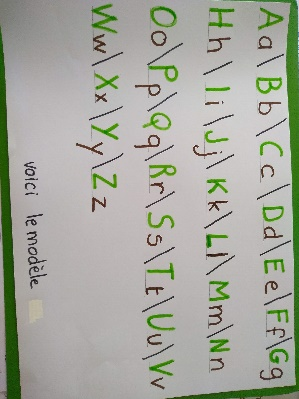 Aa\Bb\Cc\Dd\Ee\Ff\Gg
Hh\Ii\Jj\Kk\Ll\Mm\Nn
Oo\Pp\Qq\Rr\Ss\Tt\Uu\Vv
Ww\Xx\Yy\Zz
voici le modèle